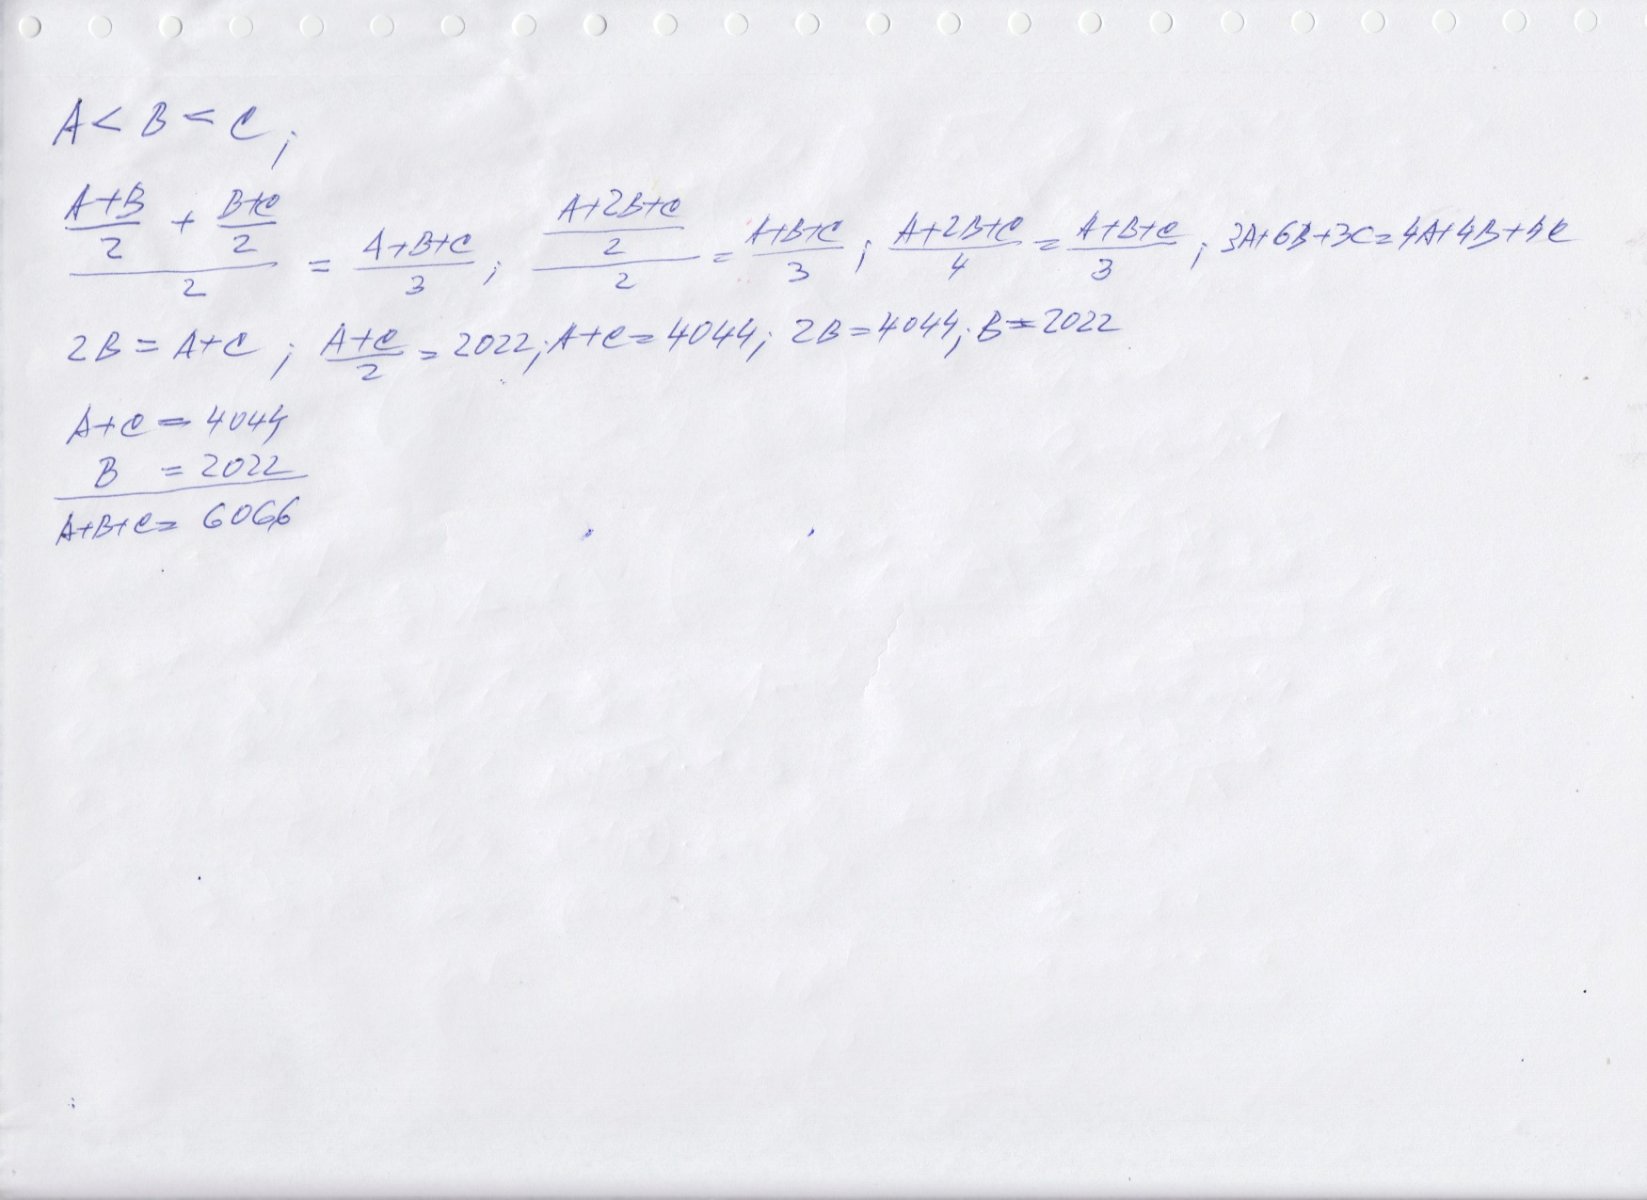 A < B < C ;
((A+B)/2 + (B+C)/2)/2 = (A+B+C)/3 ; ((A+2B+C)/2)/2 = (A+B+C)/3 ; (A+2B+C)/4 = (A+B+C)/3 ; 3A+6B+3C=4A+4B+4C
2B = A+C ; (A+C)/2 = 2022; A+C = 4044; 2B=4044; B=2022
A+C = 4044
B = 2022
A+B+C= 6066